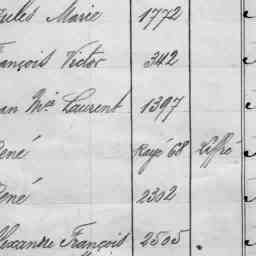 Jules Marie 1772
François Victor 342
Jean Mie Laurent 1397
René Rayé 68
René 2302
Alexandre François 2505